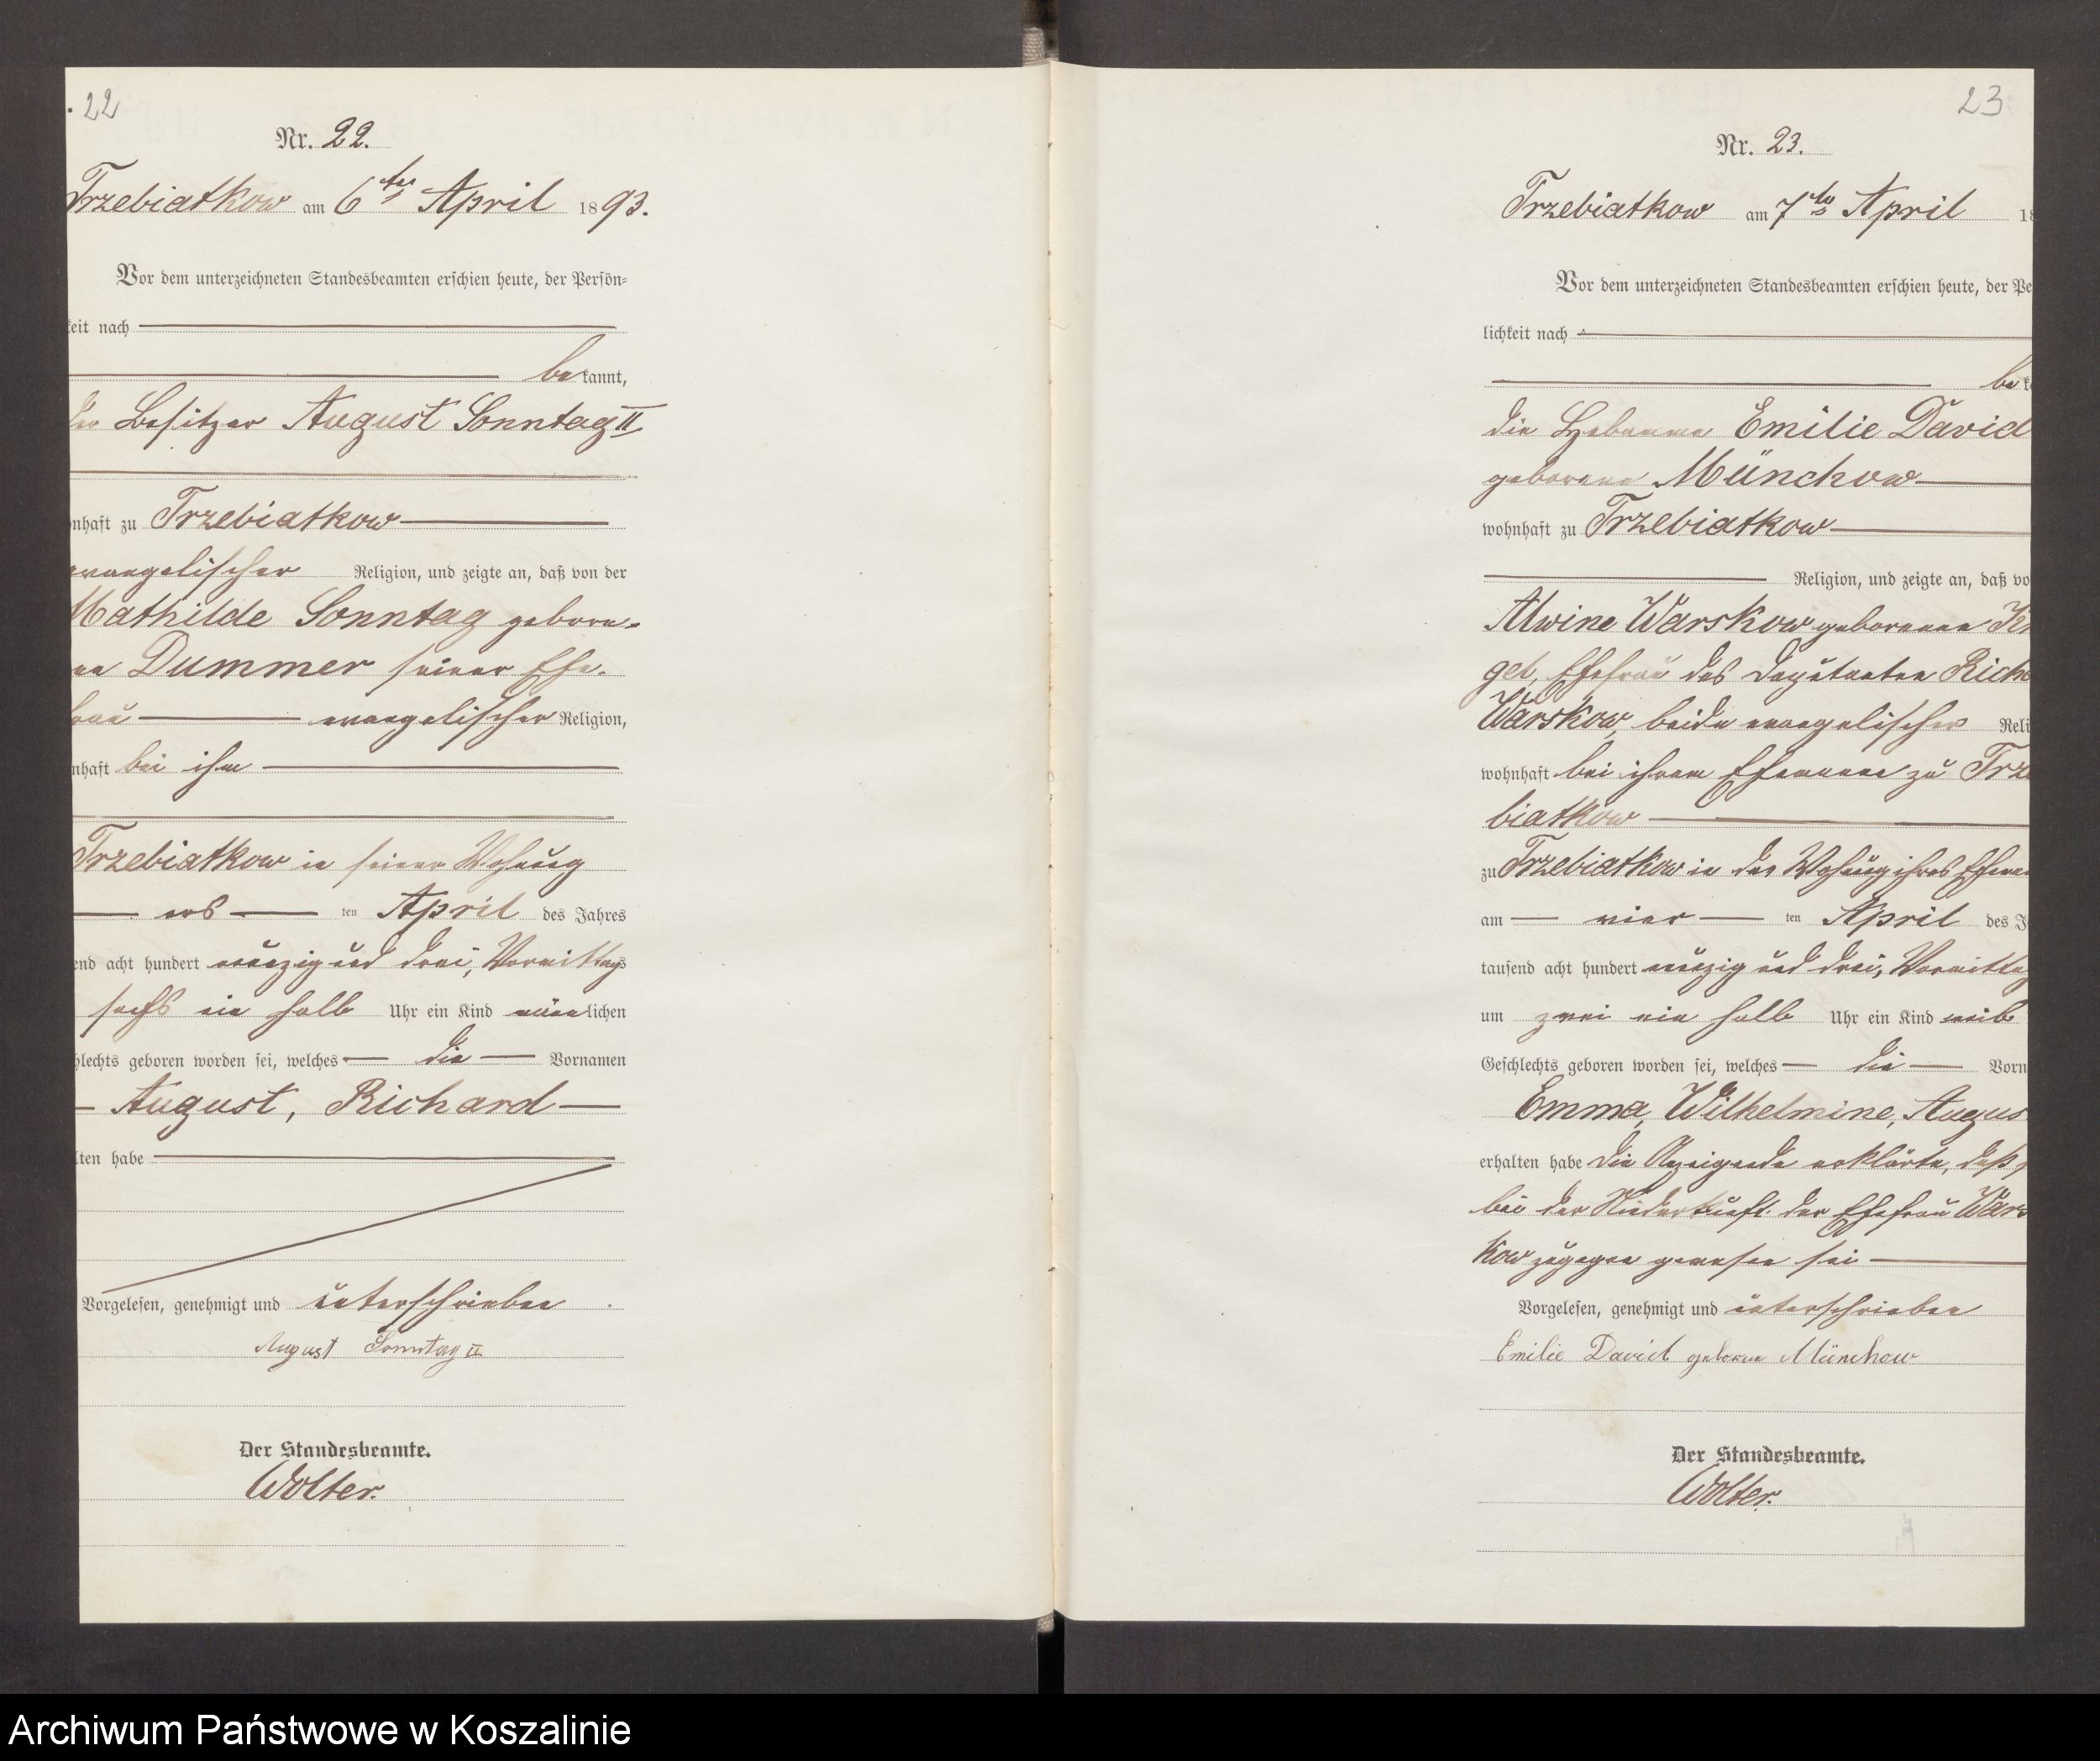 . 22
Nr. 22.
Trzebiatkow am 6ten April 1893.
Vor dem unterzeichneten Standesbeamten erschien heute, der Persön=
keit nach
bekannt,
der Besitzer August Sonntag II
nhaft zu Trzebiatkow
evangelischer Religion, und zeigte an, daß von der
Mathilde Sonntag gebore-
ne Dummer seiner Ehe-
frau evangelischer Religion,
nhaft bei ihm
Trzebiatkow in seiner Wohnung
ten April des Jahres
end acht hundert neunzig und drei, Vormittags
sechs ein halb Uhr ein Kind männlichen
hlechts geboren worden sei, welches die Vornamen
August, Richard
lten habe
Vorgelesen, genehmigt und unterschrieben
August Sonntag II
Der Standesbeamte.
Wolter.
23
Nr. 23.
Trzebiatkow am 7ten April 18
Vor dem unterzeichneten Standesbeamten erschien heute, der Pe
lichkeit nach
bek
die Hebamme Emilie David
geborene Münchow
wohnhaft zu Trzebiatkow
Religion, und zeigte an, daß vo
Alwine Warskow geborenen
gel, Ehefrau des Deputanten Rich
Warskow, beide evangelischer Reli
wohnhaft bei ihrem Ehemanne zu Trze
biatkow
zu Trzebiatkow in der Wohnung ihres Ehema
am vier ten April des J
tausend acht hundert neunzig und drei, Vormittag
um zwei ein halb Uhr ein Kind weib
Geschlechts geboren worden sei, welches die Vorn
Emma, Wilhelmine, Augus
erhalten habe Die Anzeigende erklärte, daß s
bei der Niederkunft der Ehefrau Wars
kow zugegen gewesen sei
Vorgelesen, genehmigt und unterschrieben
Emilie David geborne Münchow
Der Standesbeamte.
Wolter.
Archiwum Państwowe w Koszalinie